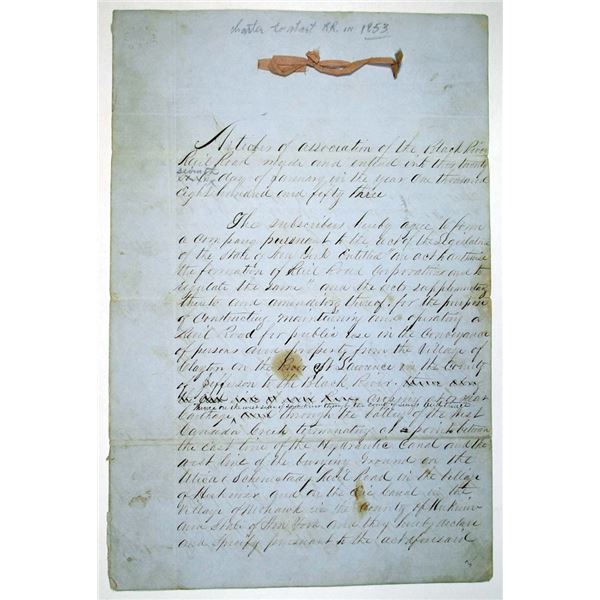 charter to start RR. in 1853
Articles of association of the Black River
Rail Road made and entered into this twenty
seventh
day of January in the year One thousand
Eight hundred and fifty three
The subscribers hereby agree to form
a Company pursuant to the act of the Legislature
of the State of New York Entitled "an act to authorize
the formation of Rail Road Corporations and to
regulate the same" and the acts supplementary
thereto and amendatory thereof for the purpose
of Constructing maintaining and operating a
Rail Road for public use in the Conveyance
of persons and property from the Village of
Clayton on the River St Lawrence in the County
of Jefferson to the Black River
crossing at or near
Carthage, thence on the west side of
and through the Valley of the West
Canada Creek terminating at a point between
the East line of the Hydraulic Canal and the
west line of the burying Ground on the
Utica & Schenectady Rail Road in the Village
of Herkimer and on the Erie Canal in the
Village of Mohawk in the County of Herkimer
and State of New York and they hereby declare
and specify pursuant to the act aforesaid